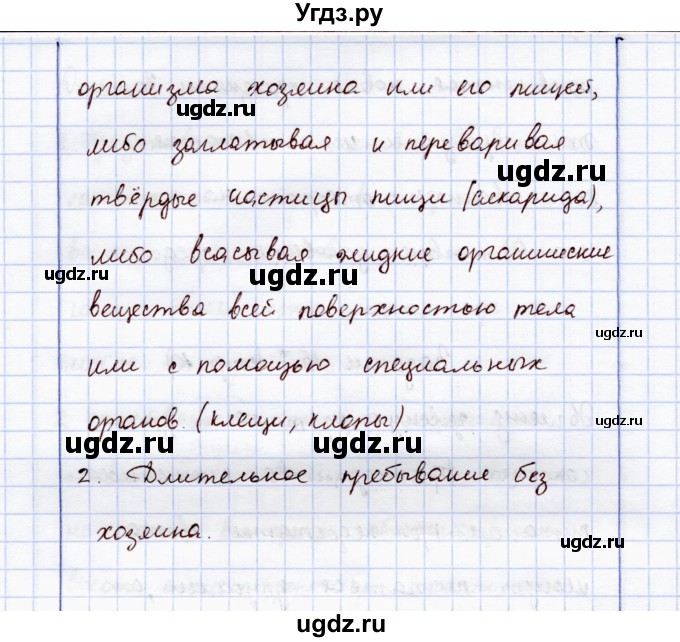 Угдз.ру
организма хозяина или его пищей,
ugdz.ru
либо заглатывая и переваривая
ugdz.ru
твёрдые частицы пищи (аскарида),
либо всасывая жидкие органические
ugdz.ru
ugdz.ru
вещества всей поверхностью тела
ugdz.ru
или с помощью специальных
органов. (клещи, клопы).
ugdz.ru
ugdz.ru
2. Длительное пребывание без
хозяина.
ugdz.ru
ugdz.ru